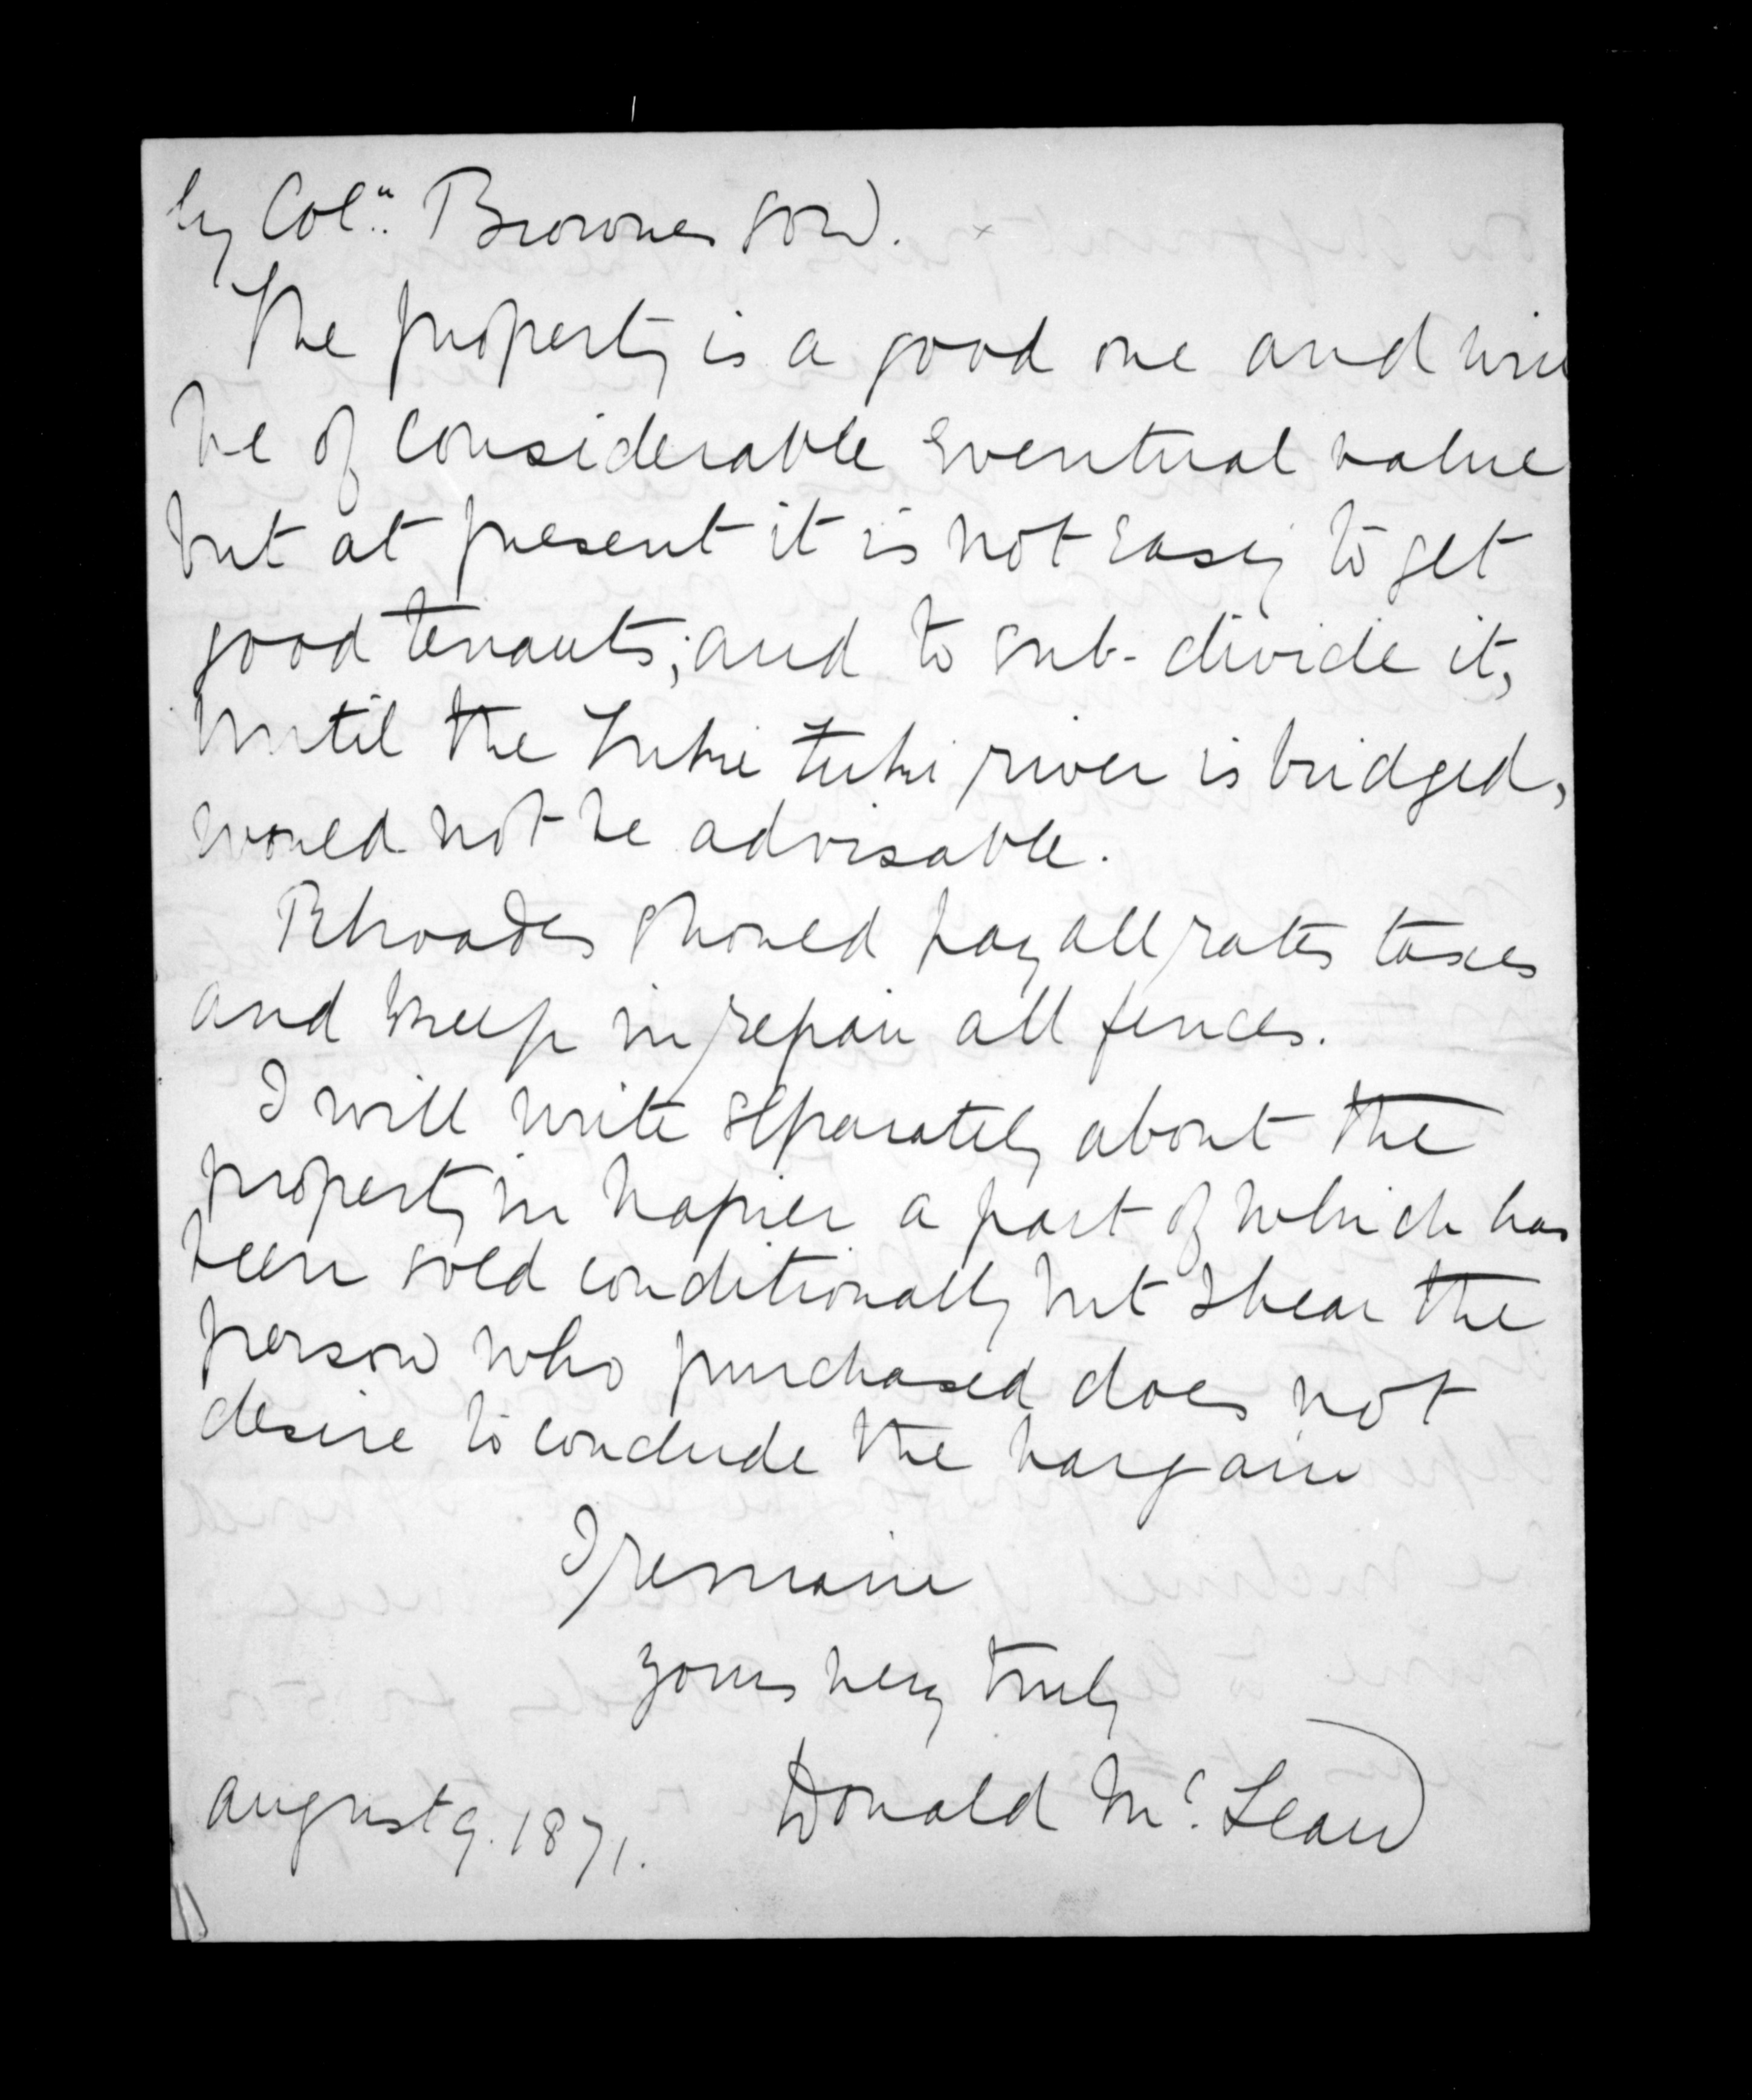 by Coln. Brownes son.
The property is a good one and will
be of considerable eventual value
but at present it is not easy to get
good tenants; and to sub-divide it,
until the Tuki Tuki river is bridged,
would not be advisable.
Rhoades should pay all rates taxes
and keep in repair all fences.
I will write separately about the
property in Napier a part of which has
been sold conditionally but I hear the
person who purchased does not
desire to conclude the bargain
I remain
yours very truly
Donald McLean
August 9. 1871.